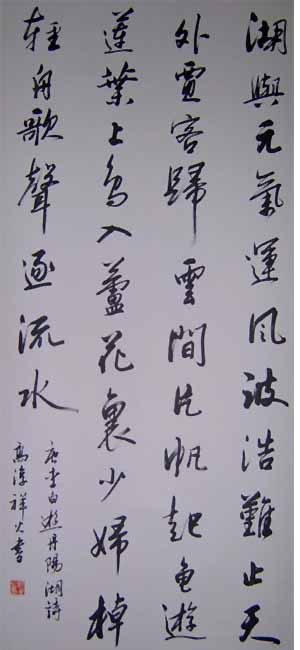 湖與元氣運風波浩難止天
外賈客歸雲間片帆起龜遊
蓮葉上鳥入蘆花裏少婦棹
輕舟歌聲逐流水
唐李白遊丹陽湖詩
高淳祥火書